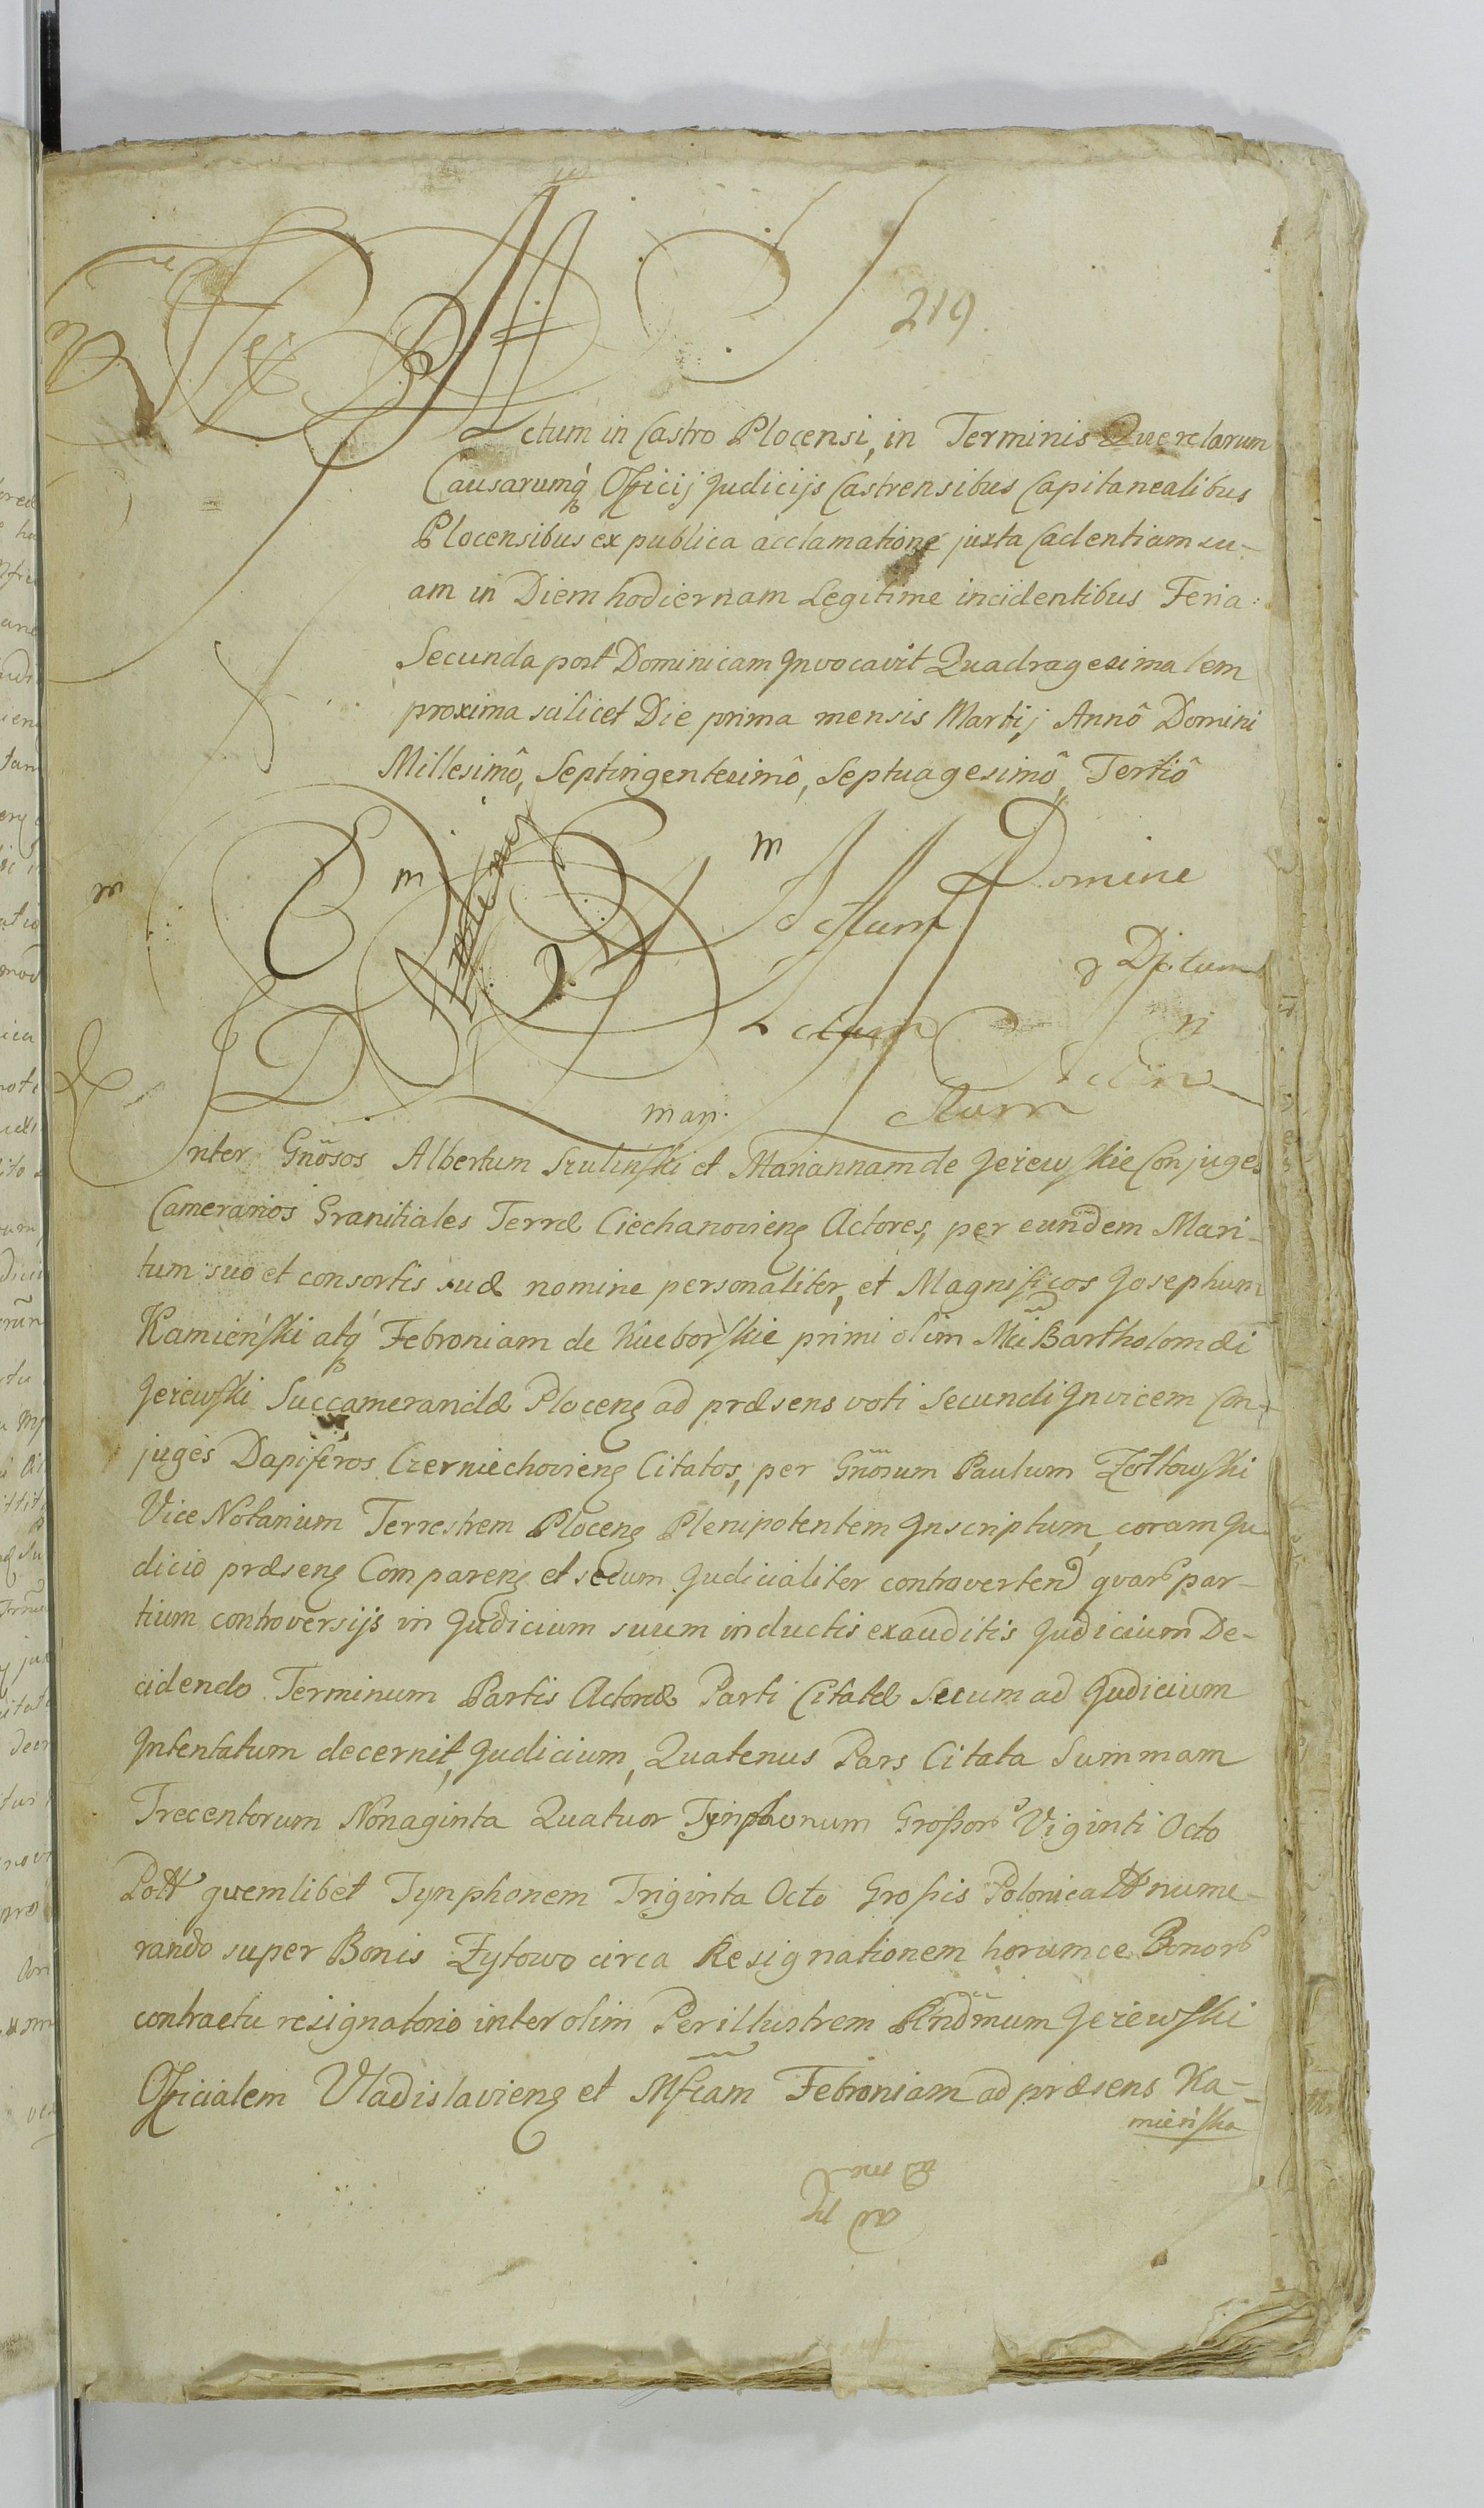 219.
Actum in Castro Plocensi, in Terminis Querelarum
Causarumq́ Officij Judicijs Castrensibus Capitanealibus
Plocensibus ex publica acclamatione juxta Cadentiam su-
am in Diem hodiernam Legitime incidentibus Feria
Secunda post Dominicam Invocavit Quadragesimalem
proxima scilicet Die prima mensis Martij Annô Domini
Millesimô, Septingentesimô, Septuagesimô, Tertiô
m m m Domine
ctum
Ditum
ctum
man. ctum
Inter Gn̄osos Albertum Szulinski et Mariannam de Jeżewskie Conjuges
Cameranios Granitiales Terræ Ciechanovieng Actores, per eundem Mari-
tum suo et consortis suæ nomine personaliter, et Magnificos Josephum
Kamieński atq́ Febroniam de primi olim Mci Bartholomæi
Jeżewski Succamerandæ Ploceng ad præsens voti Secundi Invicem Con-
juges Dapiferos Czerniechovieng Citatos, per Gnōsum Paulum Żołtowski
Vice Notarium Terrestrem Ploceng Plenipotentem Inscriptum, coram Ju-
dicio præseng Compareng et secum Judicialiter controvertend quar par-
tium controversijs in Judicium suum inductis exauditis Judicium De-
cidendo Terminum Partis Actoreæ Parti Citatæ Secum ad Judicium
Intentatum decernit, Judicium, Quatenus Pars Citata Summam
Trecentorum Nonaginta Quatuor Tynphonum Grossor Viginti Octo
Poll quemlibet Tynphonem Triginta Octo Grossis Polonicall nume-
rando super Bonis Zytowo circa Resignationem horumce Bonor
contractu resignatorio inter olim Perillustrem Rndmum Jeżewski
Officialem Vladislavieng et Mficam Febroniam ad præsens Ka-
mieńska